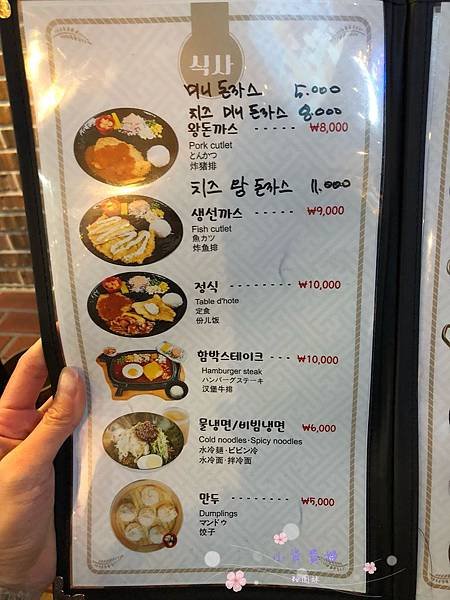 식사
미니 돈까스 5.000
치즈 미니 돈까스 8.000
왕돈까스 - - - - - ₩8,000
Pork cutlet
とんかつ
炸猪排
치즈 왕 돈까스 11.000
생선까스 - - - - - ₩9,000
Fish cutlet
魚カツ
炸鱼排
정식 - - - - - - - - ₩10,000
Table d'hote
定食
份儿饭
함박스테이크 - - - ₩10,000
Hamburger steak
ハンバーグステーキ
汉堡牛排
물냉면/비빔냉면 ₩6,000
Cold noodles·Spicy noodles
水冷麺·ビビン冷
水冷面·拌冷面
만두 - - - - - - - - ₩5,000
Dumplings
マンドゥ
饺子